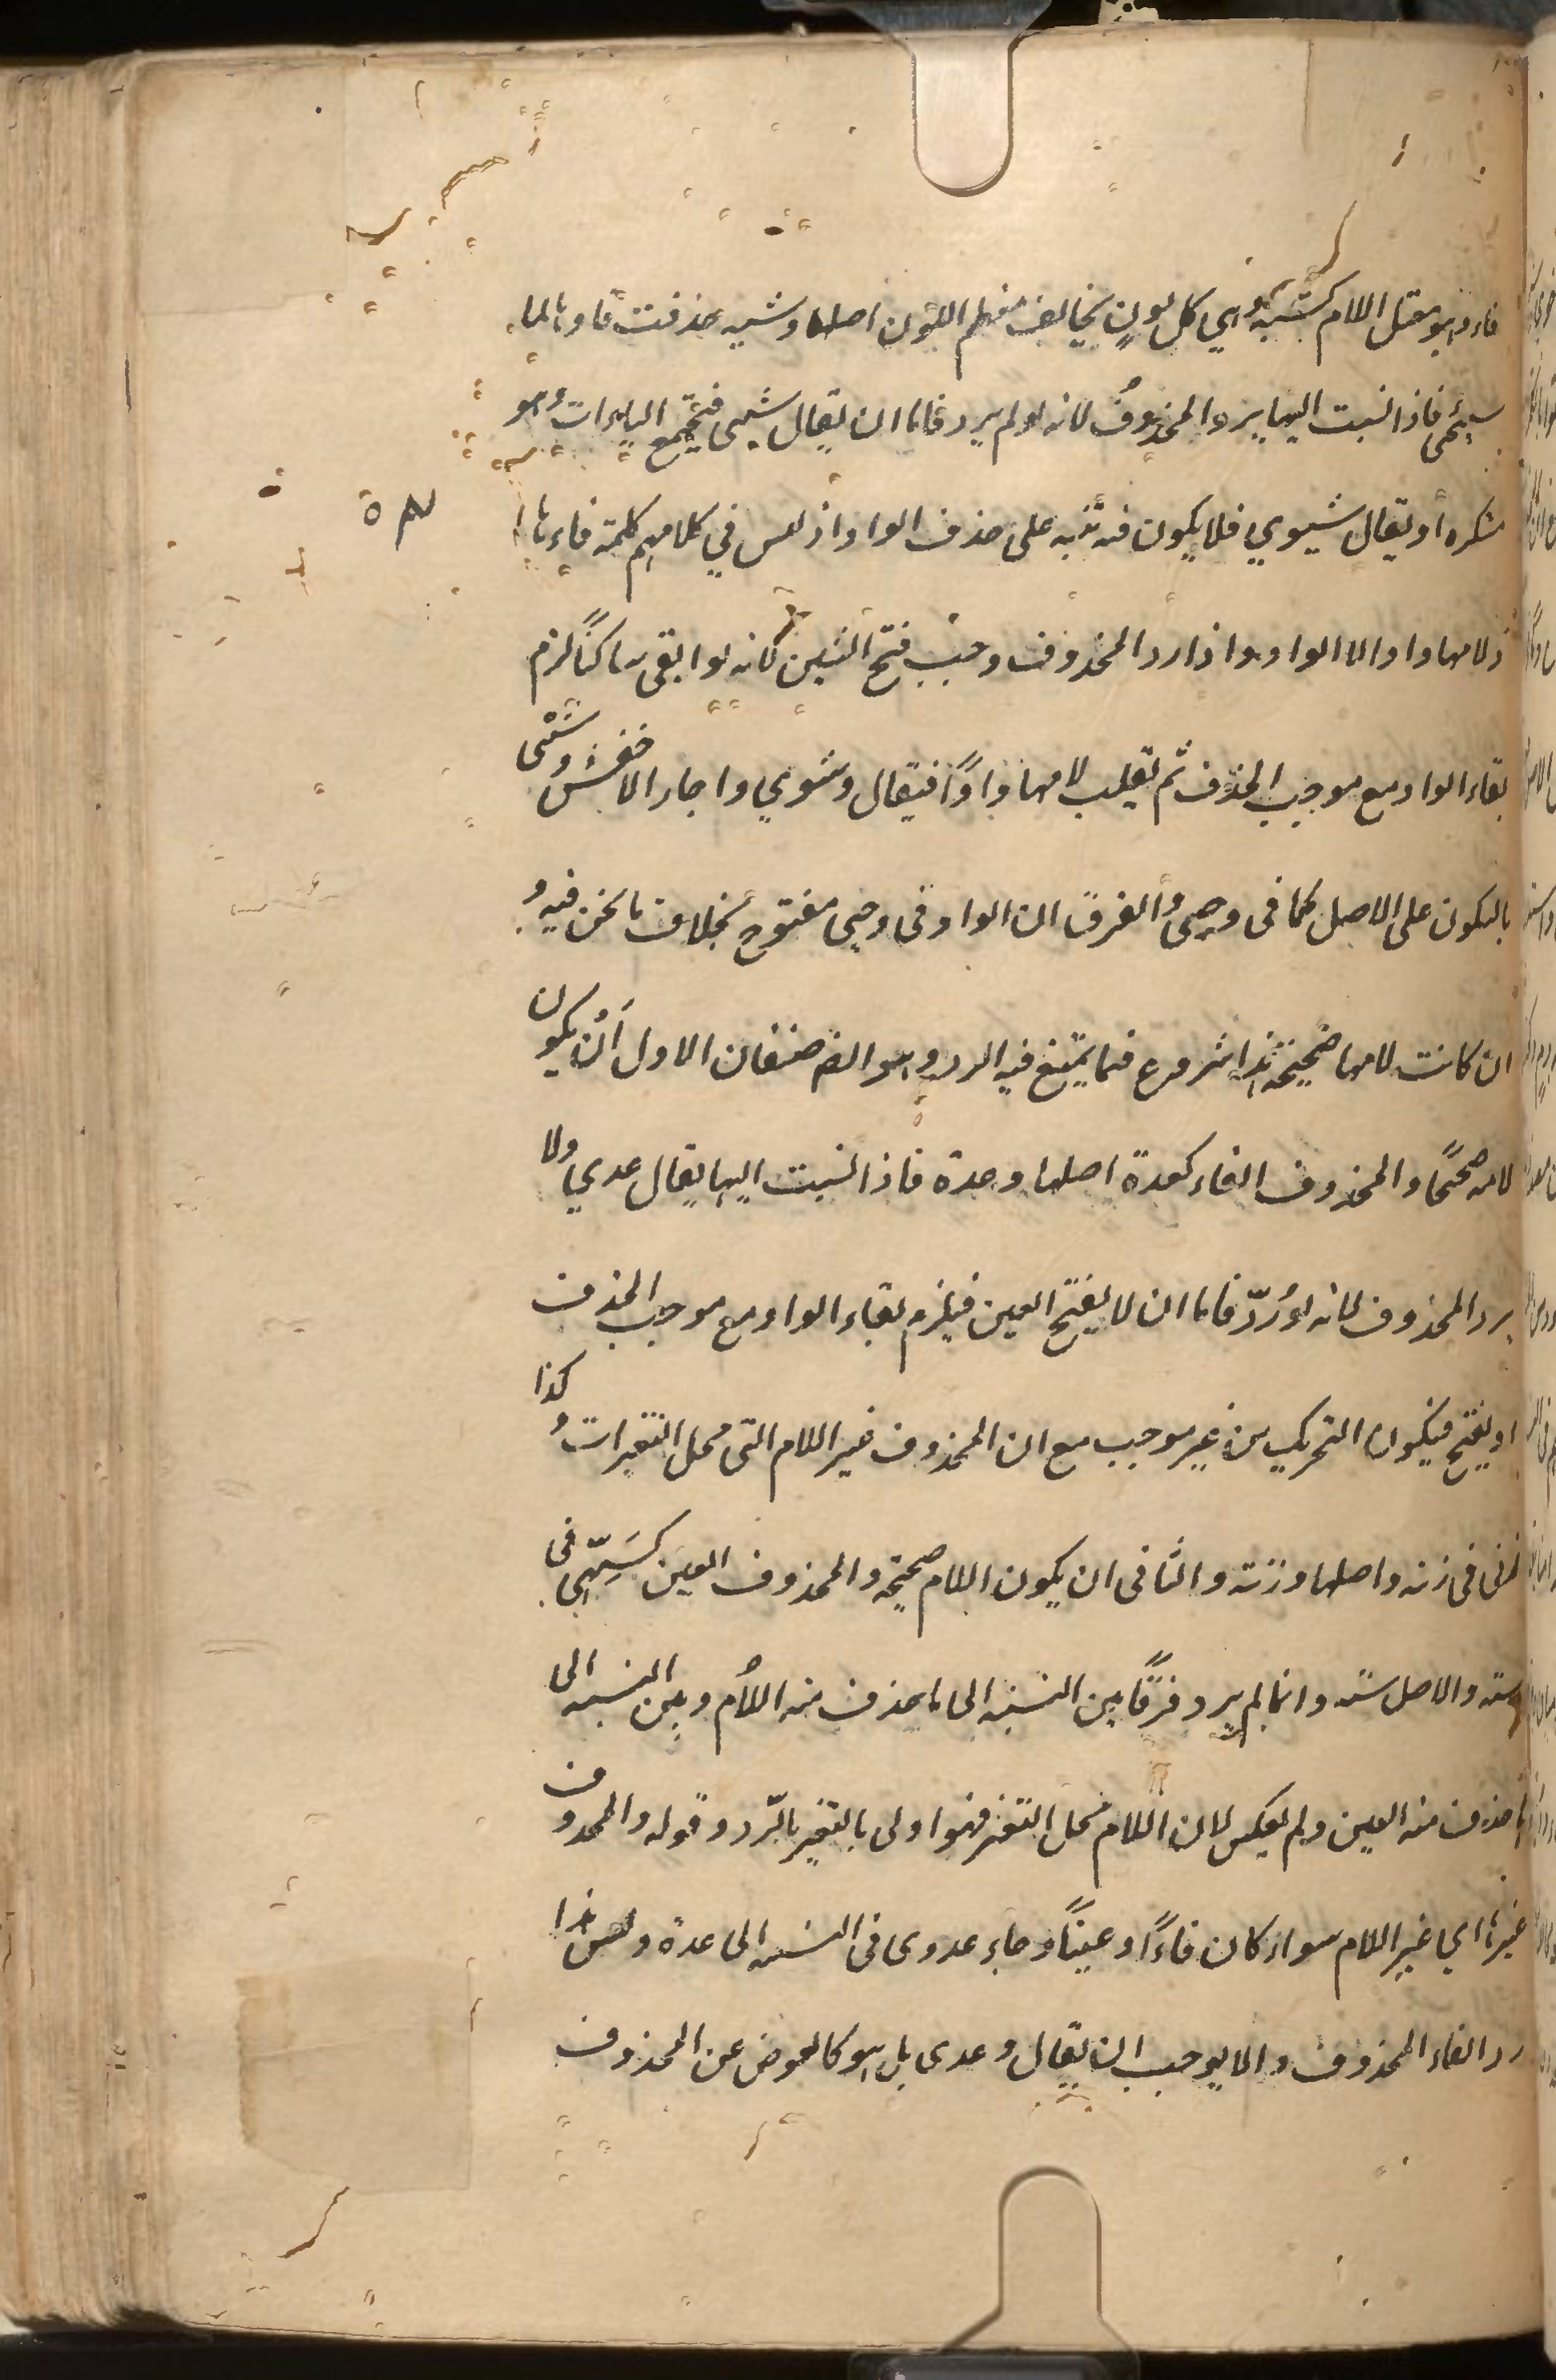 فاءه وهو معتل اللام كشية وهي كل لون يخالف معظم اللون اصلها وشية حذفت فاوها لما
سيجئ فاذا نسبت اليها يرد المحذوف لانه لو لم يرد فاما ان يقال شيي فتجتمع الياءات وهو
مستكره أو يقال شيوي فلا يكون فيه تنبه على حذف الواو اذ ليس في كلامهم كلمة فاءها
ولامها واو الا الواو واذا رد المحذوف وجب فتح الشين لانه لو ابقى ساكنًا لزم
بقاء الواو مع موجب الحذف ثم تقلب لامها واوًا فيقال وشوي واجاز الاخفش وشيى
بالسكون على الاصل كما في وحيى والفرق ان الواو في وحيى مفتوح بخلاف ما نحن فيه و
ان كانت لامها صحيحة هذا شروع فيما يمتنع فيه الرد وهو ايضا صنفان الاول أن يكون
لامه صحيحًا والمحذوف الفاء كعدة اصلها وعدة فاذا نسبت اليها يقال عدي ولا
يرد المحذوف لانه لو رُدّ فاما ان لا يفتح العين فيلزم بقاء الواو مع موجب الحذف
او يفتح فيكون التحريك من غير موجب مع ان المحذوف غير اللام التى محل التغيرات وكذا
زنى في زنة واصلها وزنة والثاني ان يكون اللام صحيحة والمحذوف العين كسَهِيّ في
سه والاصل سته وانما لم يرد فرقًا بين النسبة الى ما حذف منه اللام وبين النسبة الى
ما حذف منه العين ولم يعكس لان اللام محل التغير فهو اولى بالتغير بالرّد وقوله والمحذوف
غيرها اي غير اللام سواء كان فاءً او عينًا وجاء عدوى في النسبة الى عدة وليس هذا
رد الفاء المحذوف والا يوجب ان يقال وعدى بل هو كالعوض عن المحذوف